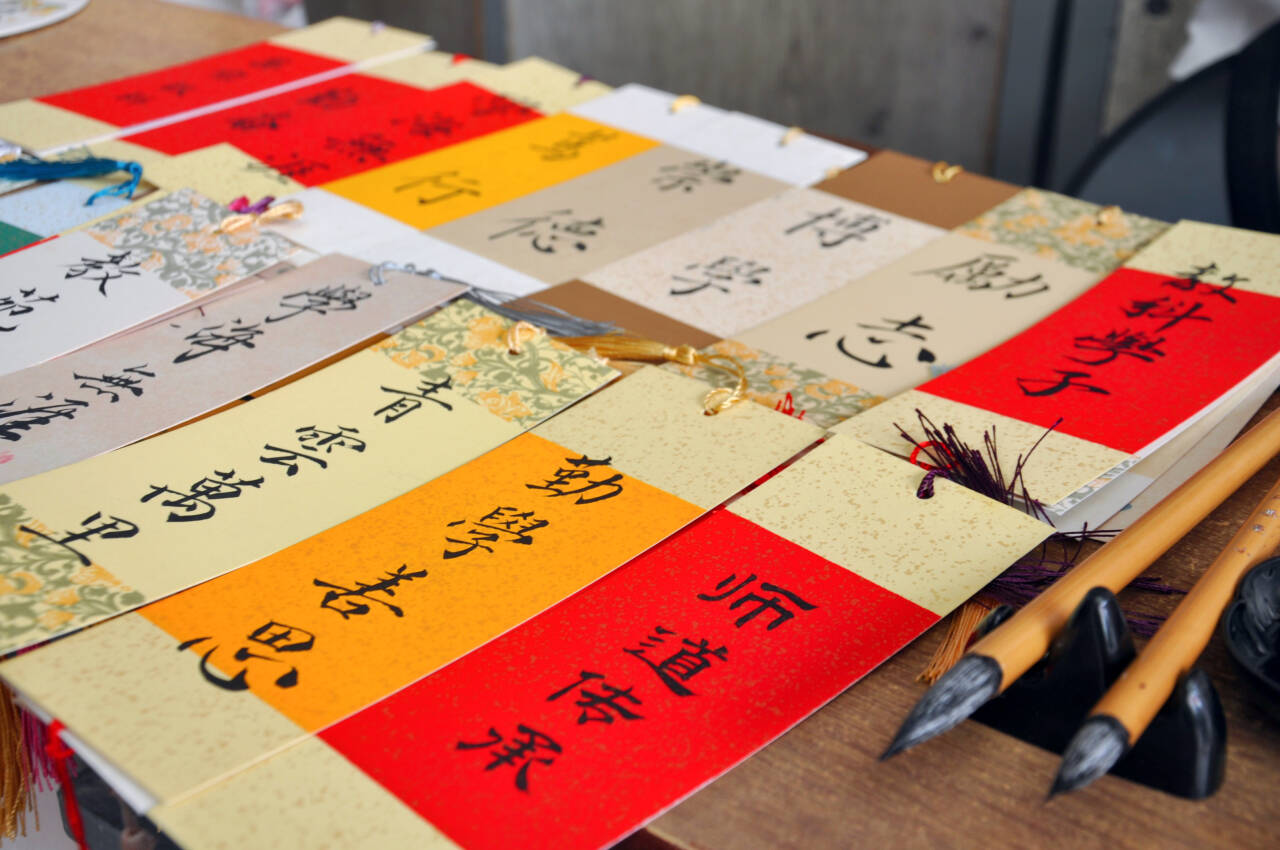 师道传承
勤學善思
青雲萬里
學海無涯
教苑
教科學子
勵志
博學
崇德
篤行